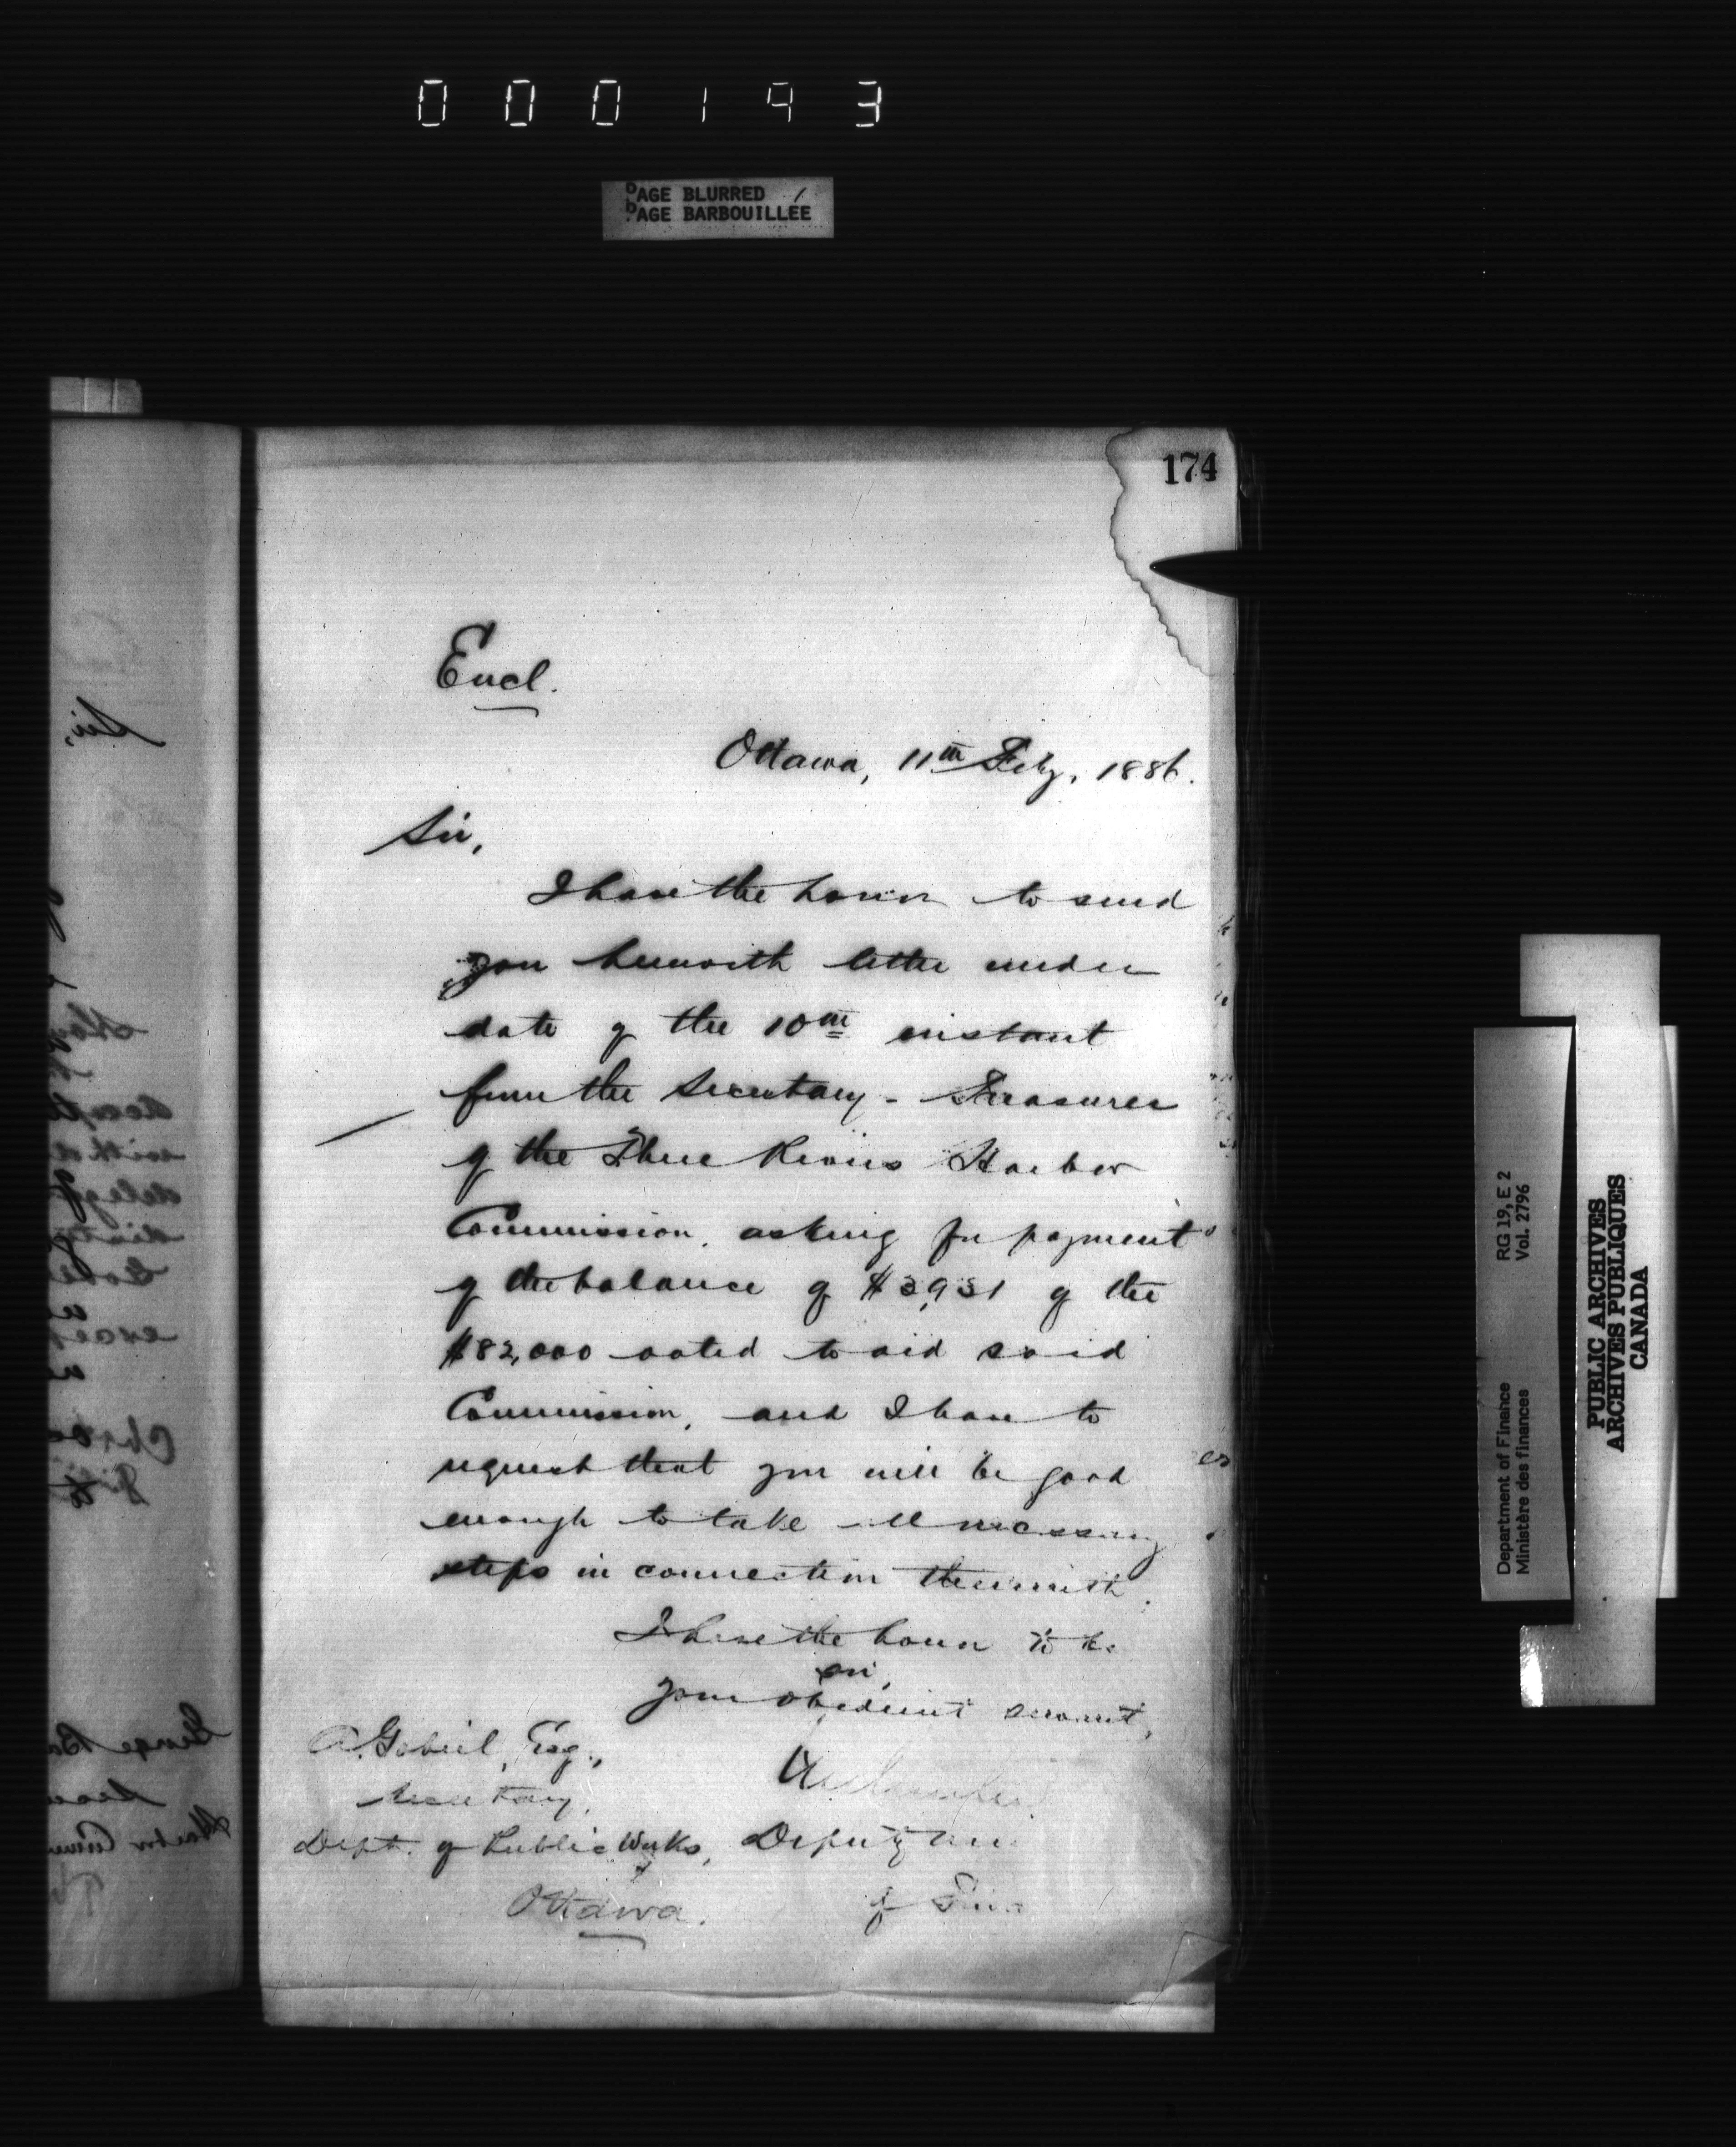 000193
PAGE BLURRED
PAGE BARBOUILLEE
174
Encl.
Ottawa, 11th Feby. 1886.
Sir,
I have the honor to send
you herewith letter under
date of the 10th instant
from the Secretary-Treasurer
of the Three Rivers Harbor
Commission, asking for payment
of the balance of $3,931 of the
$82,000 voted to aid said
Commission, and I have to
request that you will be good
enough to take all necessary
steps in connection therewith.
I have the honor to be
Sir,
your obedient servant,
A. Gobeil, Esq.,
Secretary,
Dept. of Public Works,
Ottawa.
Deputy
of
Department of Finance RG 19, E 2
Ministère des finances Vol. 2796
PUBLIC ARCHIVES
ARCHIVES PUBLIQUES
CANADA